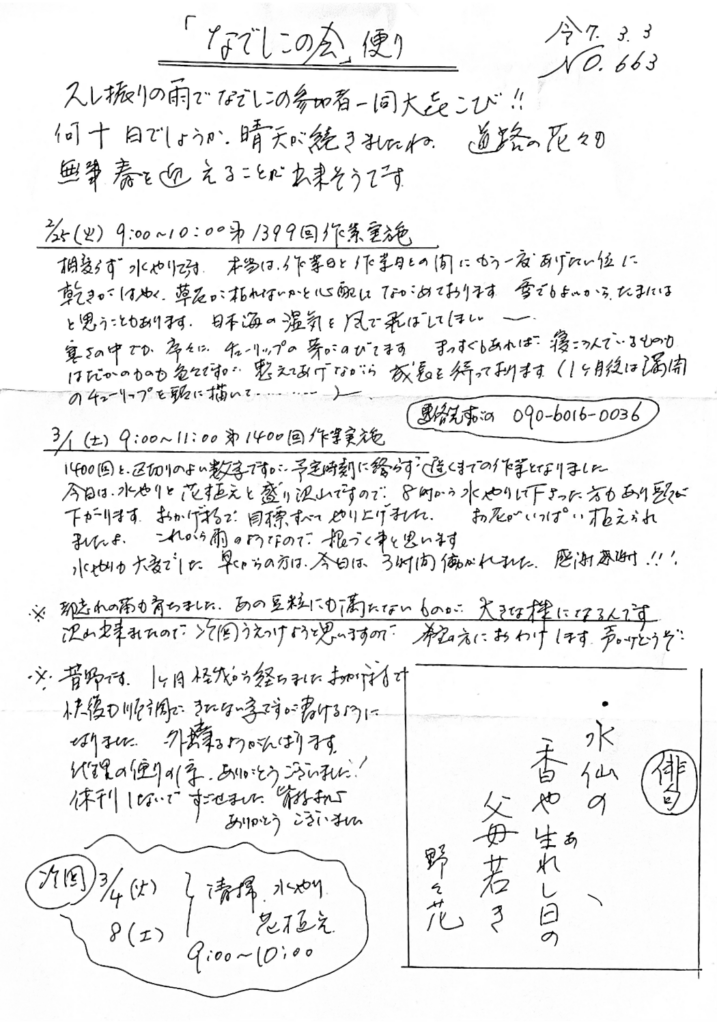 「なでしこの会」便り
令7.3.3
NO.663
久し振りの雨でなでしこの参加者一同大喜こび!!
何十日でしょうか、晴天が続きましたね。 道路の花々も
無事春を迎えることが出来そうです
2/25(火) 9:00~10:00 第1399回作業実施
相変らず水やりです。 本当は、作業日と作業日との間にもう一度あげたい位に
乾きがはやく、草花が枯れないかと心配しながめております 雪でもよいから、たまには
と思うこともあります。 日本海の湿気を風で飛ばしてほしい
寒さの中でも、序々に、チューリップの芽がのびてます まっすぐもあれば、寝ころんでいるものも
はだかのものも色々ですが、整えてあげながら 成長を待っております (1ヶ月後は満開
のチューリップを頭に描いて………)
連絡先 090-6016-0036
3/1(土) 9:00~11:00 第1400回作業実施
1400回と、区切りのよい数字ですが、予定時刻に終らず遅くまでの作業となりました
今日は、水やりと花植えと盛り沢山ですので、8時から水やりして下さった方もあり頭が
下がります。 おかげ様で目標、すべてやり上げました。 お花がいっぱい植えられ
ましたよ。 これから雨のようなので、根づく事と思います
水やりも大変でした 早くからの方は、今日は3時間働かれました。 感謝感謝!!!
※ 苗も育ちました。あの豆粒にも満たないものが、大きな株になるんです
沢山出来ましたので、次回うえつけようと思いますので、希望の方におわけします。声かけどうぞ
※ 菅野です。1ヶ月 怪我から経ちました おかげ様で
快復も順調で、きたない字ですが書けるように
なりました。 外出来るようがんばります。
代理の便りの、ありがとうございました!
休刊しないですごせました 皆さん
ありがとう ございました
次回
3/4(火)
8(土)
清掃 水やり
花植え
9:00~10:00
俳句
・水仙の
香や生れし日の
あ
父母若き
野々花